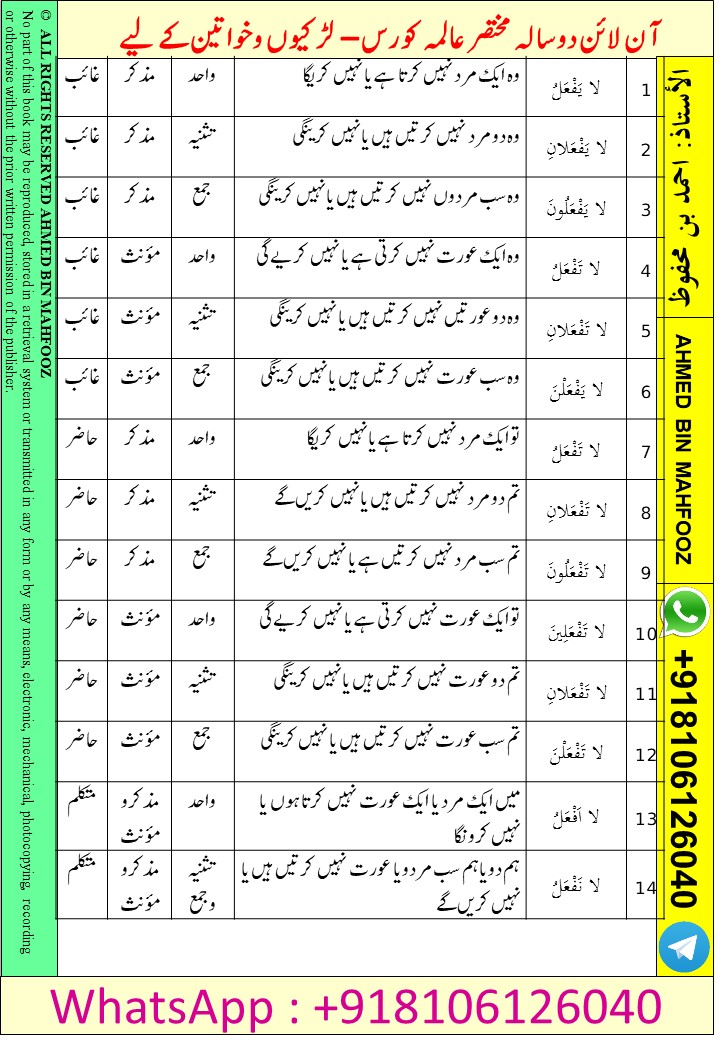 آن لائن دو سالہ مختصر عالمہ کورس – لڑکیوں و خواتین کے لیے
1 لا يَفْعَلُ وہ ایک مرد نہیں کرتا ہے یا نہیں کریگا واحد مذکر غائب
2 لا يَفْعَلانِ وہ دو مرد نہیں کرتیں ہیں یا نہیں کرینگی تثنیہ مذکر غائب
3 لا يَفْعَلُونَ وہ سب مردوں نہیں کرتیں ہیں یا نہیں کرینگی جمع مذکر غائب
4 لا تَفْعَلُ وہ ایک عورت نہیں کرتی ہے یا نہیں کریے گی واحد مؤنث غائب
5 لا تَفْعَلانِ وہ دو عورتیں نہیں کرتیں ہیں یا نہیں کرینگی تثنیہ مؤنث غائب
6 لا يَفْعَلْنَ وہ سب عورت نہیں کرتیں ہیں یا نہیں کرینگی جمع مؤنث غائب
7 لا تَفْعَلُ تو ایک مرد نہیں کرتا ہے یا نہیں کریگا واحد مذکر حاضر
8 لا تَفْعَلانِ تم دو مرد نہیں کرتیں ہیں یا نہیں کریں گے تثنیہ مذکر حاضر
9 لا تَفْعَلُونَ تم سب مرد نہیں کرتیں ہے یا نہیں کریں گے جمع مذکر حاضر
10 لا تَفْعَلِينَ تو ایک عورت نہیں کرتی ہے یا نہیں کریے گی واحد مؤنث حاضر
11 لا تَفْعَلانِ تم دو عورت نہیں کرتیں ہیں یا نہیں کرینگی تثنیہ مؤنث حاضر
12 لا تَفْعَلْنَ تم سب عورت نہیں کرتیں ہیں یا نہیں کرینگی جمع مؤنث حاضر
13 لا اَفْعَلُ میں ایک مرد یا ایک عورت نہیں کرتا ہوں یا واحد مذکر و متکلم
نہیں کرونگا مؤنث
14 لا نَفْعَلُ ہم دو یا ہم سب مرد و یا عورت نہیں کرتیں ہیں یا تثنیہ مذکر و متکلم
نہیں کریں گے و جمع مؤنث
الأستاذ: احمد بن محفوظ
AHMED BIN MAHFOOZ
+918106126040
© ALL RIGHTS RESERVED AHMED BIN MAHFOOZ
No part of this book may be reproduced, stored in a retrieval system or transmitted in any form or by any means, electronic, mechanical, photocopying, recording
or otherwise without the prior written permission of the publisher.
WhatsApp : +918106126040